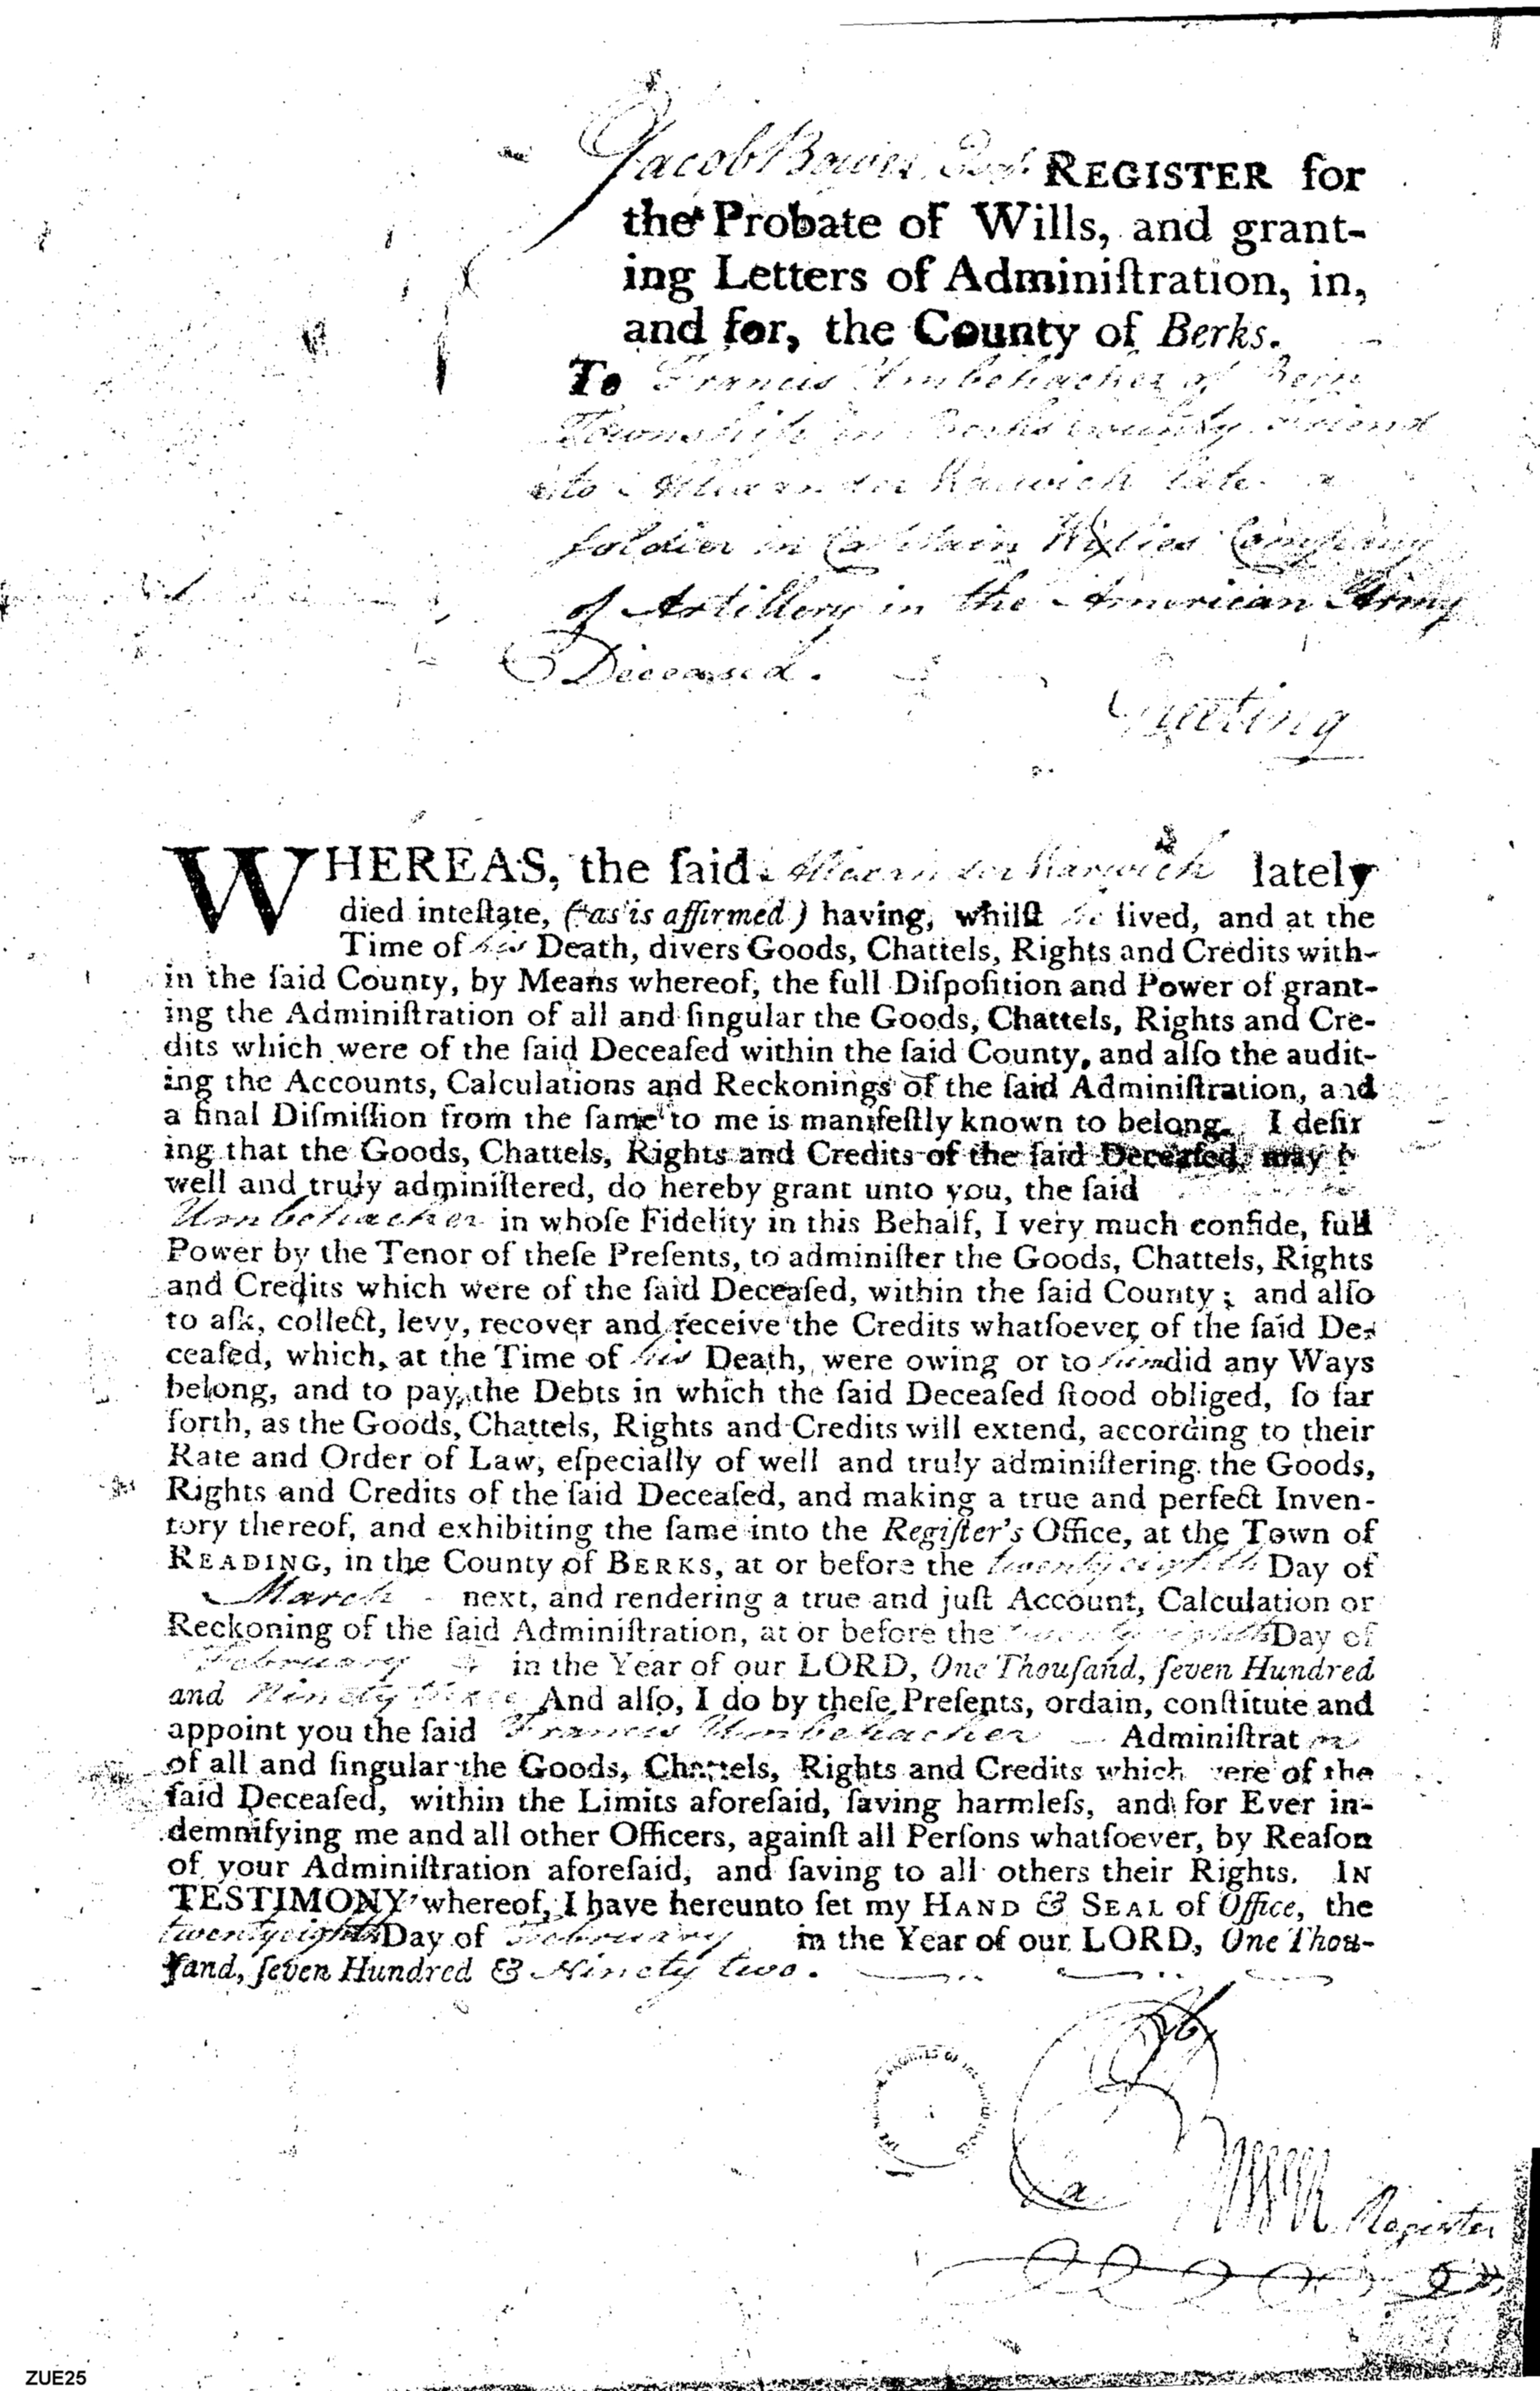 Jacob Bower Esqr. REGISTER for
the Probate of Wills, and grant-
ing Letters of Adminiſtration, in,
and for, the County of Berks.
To Francis Umbehacker of Bern
Township in Berks County friend
to Alexander Harwich late a
soldier in Captain Wylies Company
of Artillery in the American Army
Deceased.
Greeting
WHEREAS, the ſaid Alexander Harwich lately
died inteſtate, (as is affirmed) having, whilſt he lived, and at the
Time of his Death, divers Goods, Chattels, Rights and Credits with-
in the ſaid County, by Means whereof, the full Diſpoſition and Power of grant-
ing the Adminiſtration of all and ſingular the Goods, Chattels, Rights and Cre-
dits which were of the ſaid Deceaſed within the ſaid County, and alſo the audit-
ing the Accounts, Calculations and Reckonings of the ſaid Adminiſtration, and
a final Diſmiſſion from the ſame to me is manifeſtly known to belong. I deſir
ing that the Goods, Chattels, Rights and Credits of the ſaid Deceaſed, may b
well and truly adminiſtered, do hereby grant unto you, the ſaid
Umbehacker in whoſe Fidelity in this Behalf, I very much confide, full
Power by the Tenor of theſe Preſents, to adminiſter the Goods, Chattels, Rights
and Credits which were of the ſaid Deceaſed, within the ſaid County; and alſo
to aſk, collect, levy, recover and receive the Credits whatſoever of the ſaid De-
ceaſed, which, at the Time of his Death, were owing or to him did any Ways
belong, and to pay the Debts in which the ſaid Deceaſed ſtood obliged, ſo far
forth, as the Goods, Chattels, Rights and Credits will extend, according to their
Rate and Order of Law, eſpecially of well and truly adminiſtering the Goods,
Rights and Credits of the ſaid Deceaſed, and making a true and perfect Inven-
tory thereof, and exhibiting the ſame into the Regiſter's Office, at the Town of
READING, in the County of BERKS, at or before the twenty eighth Day of
March next, and rendering a true and juſt Account, Calculation or
Reckoning of the ſaid Adminiſtration, at or before the twenty eighth Day of
February in the Year of our LORD, One Thouſand, ſeven Hundred
and Ninety three And alſo, I do by theſe Preſents, ordain, conſtitute and
appoint you the ſaid Francis Umbehacker Adminiſtrator
of all and ſingular the Goods, Chattels, Rights and Credits which were of the
ſaid Deceaſed, within the Limits aforeſaid, ſaving harmleſs, and for Ever in-
demnifying me and all other Officers, againſt all Perſons whatſoever, by Reaſon
of your Adminiſtration aforeſaid, and ſaving to all others their Rights. IN
TESTIMONY whereof, I have hereunto ſet my HAND & SEAL of Office, the
twenty eighth Day of February in the Year of our LORD, One Thou-
ſand, ſeven Hundred & Ninety two.
Register
ZUE25